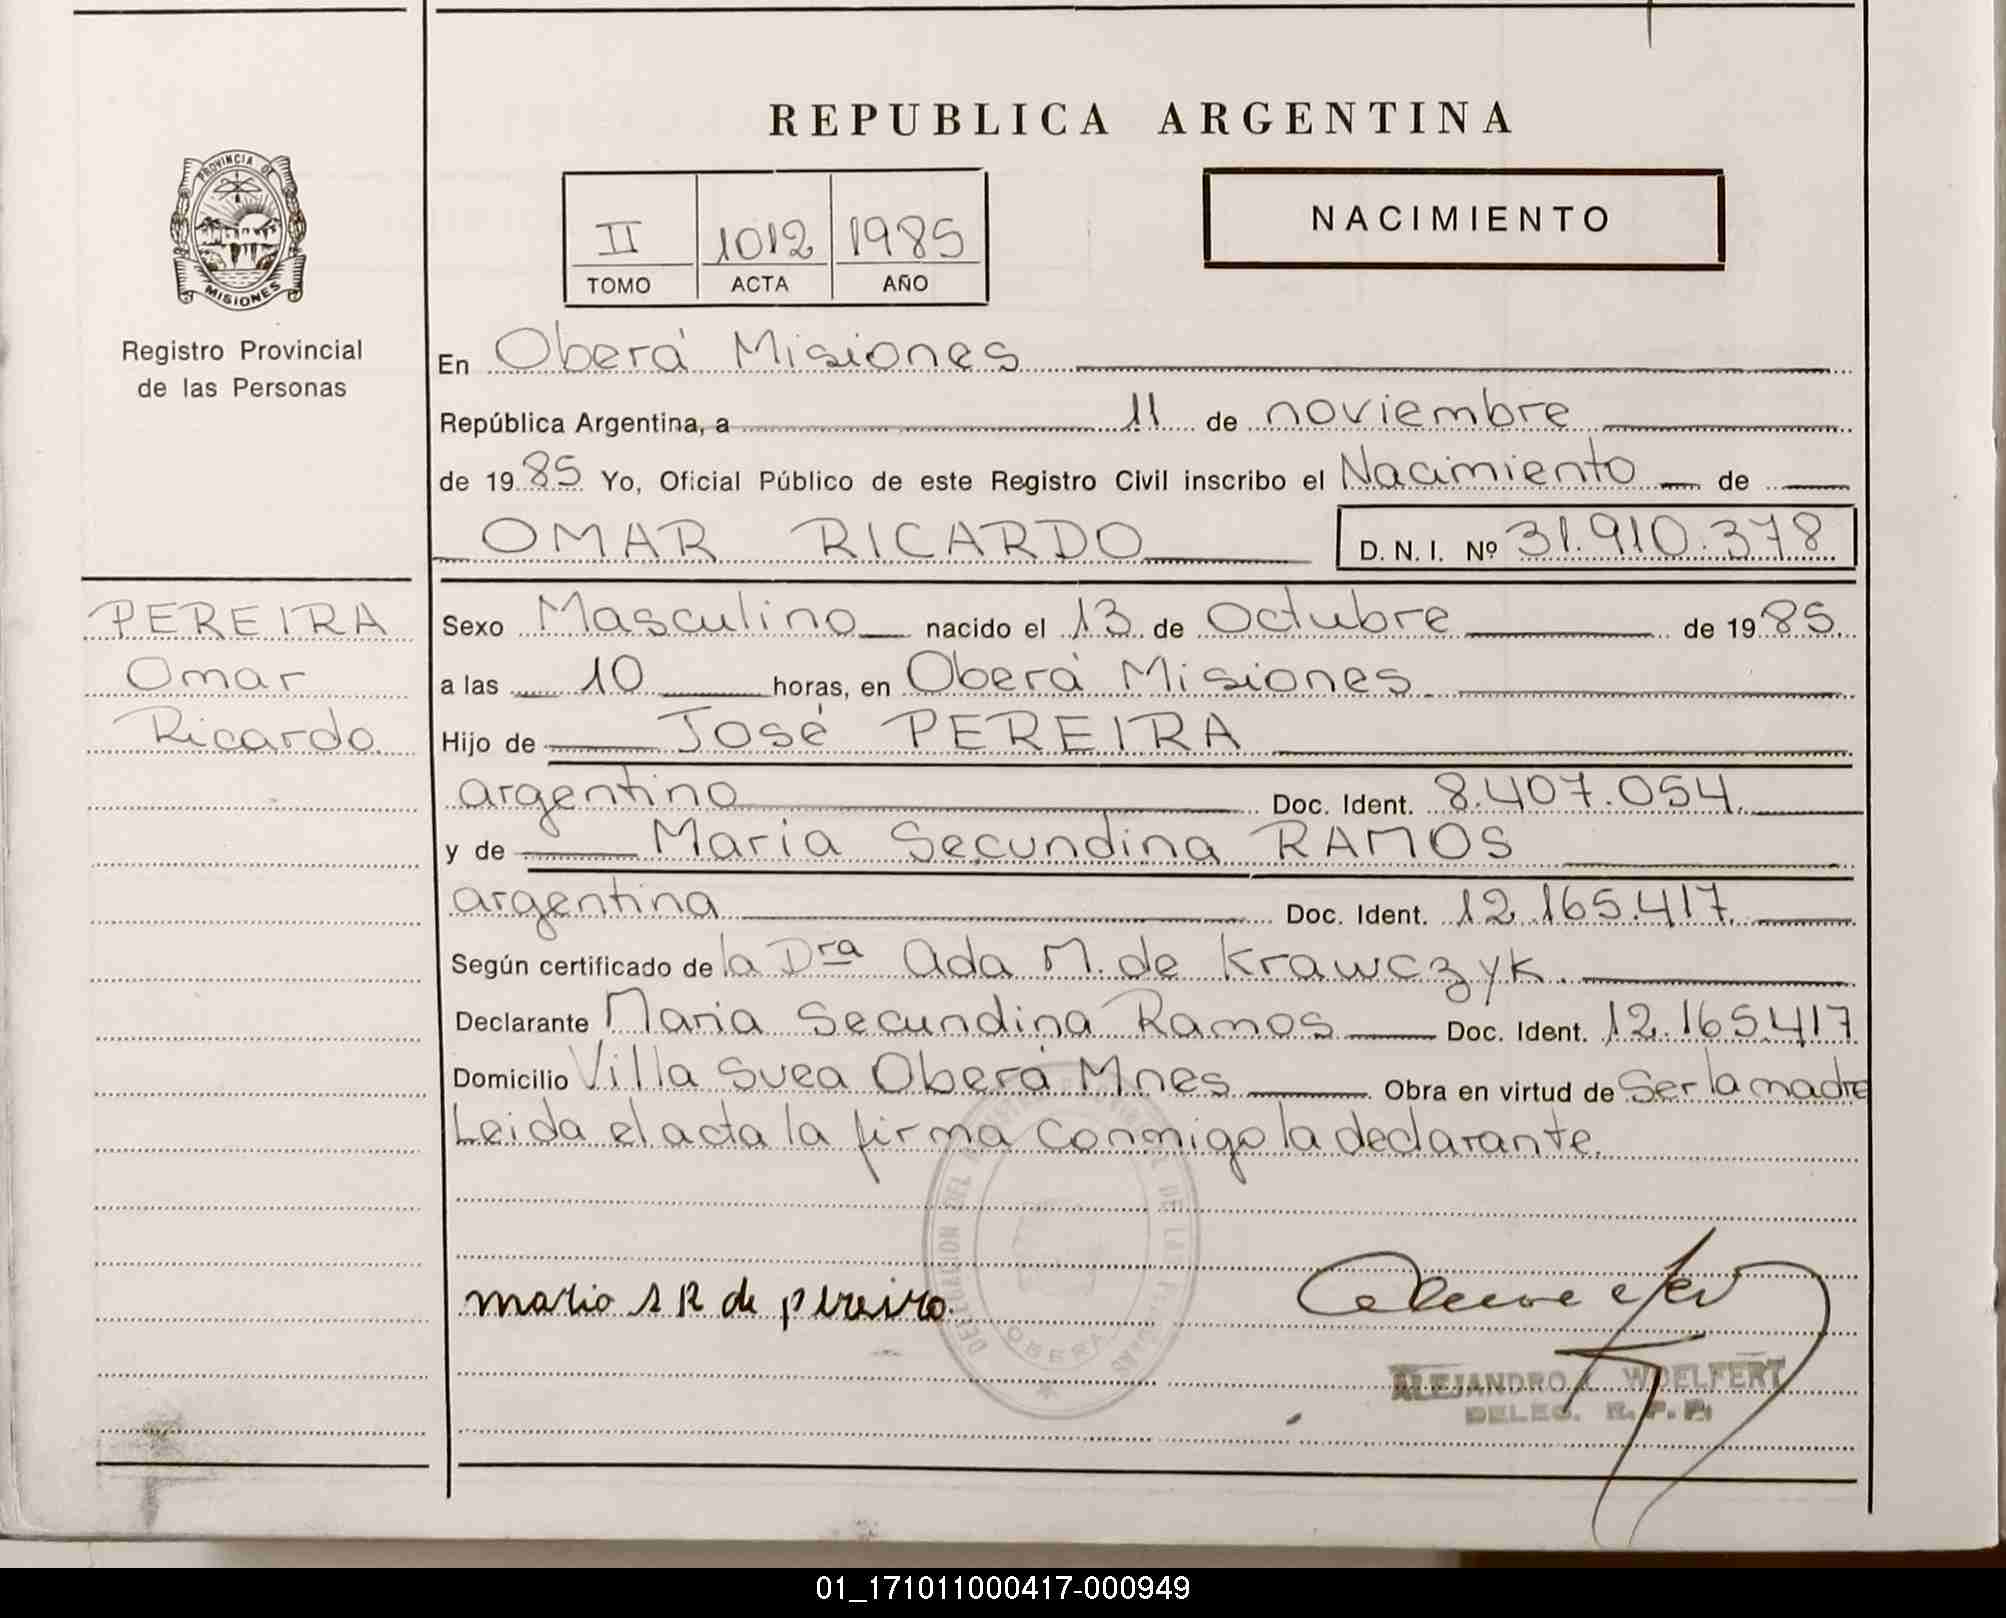 REPUBLICA ARGENTINA
PROVINCIA DE
MISIONES
II 1012 1985
TOMO ACTA AÑO
NACIMIENTO
Registro Provincial
de las Personas
En Oberá Misiones
República Argentina, a 11 de noviembre
de 1985 Yo, Oficial Público de este Registro Civil inscribo el Nacimiento de
OMAR RICARDO D. N. I. Nº 31.910.378
PEREIRA
Omar
Ricardo
Sexo Masculino nacido el 13 de Octubre de 1985
a las 10 horas, en Oberá Misiones
Hijo de José PEREIRA
argentino Doc. Ident. 8.407.054
y de Maria Secundina RAMOS
argentina Doc. Ident. 12.165.417
Según certificado de la Dra Ada M. de Krawczyk.
Declarante Maria Secundina Ramos Doc. Ident. 12.165.417
Domicilio Villa Svea Oberá Mnes Obra en virtud de Ser la madre
Leida el acta la firma conmigo la declarante.
maria s R de pereira.
OBERA
ALEJANDRO WOELFERT
DELEG. R. P. P.
01_171011000417-000949